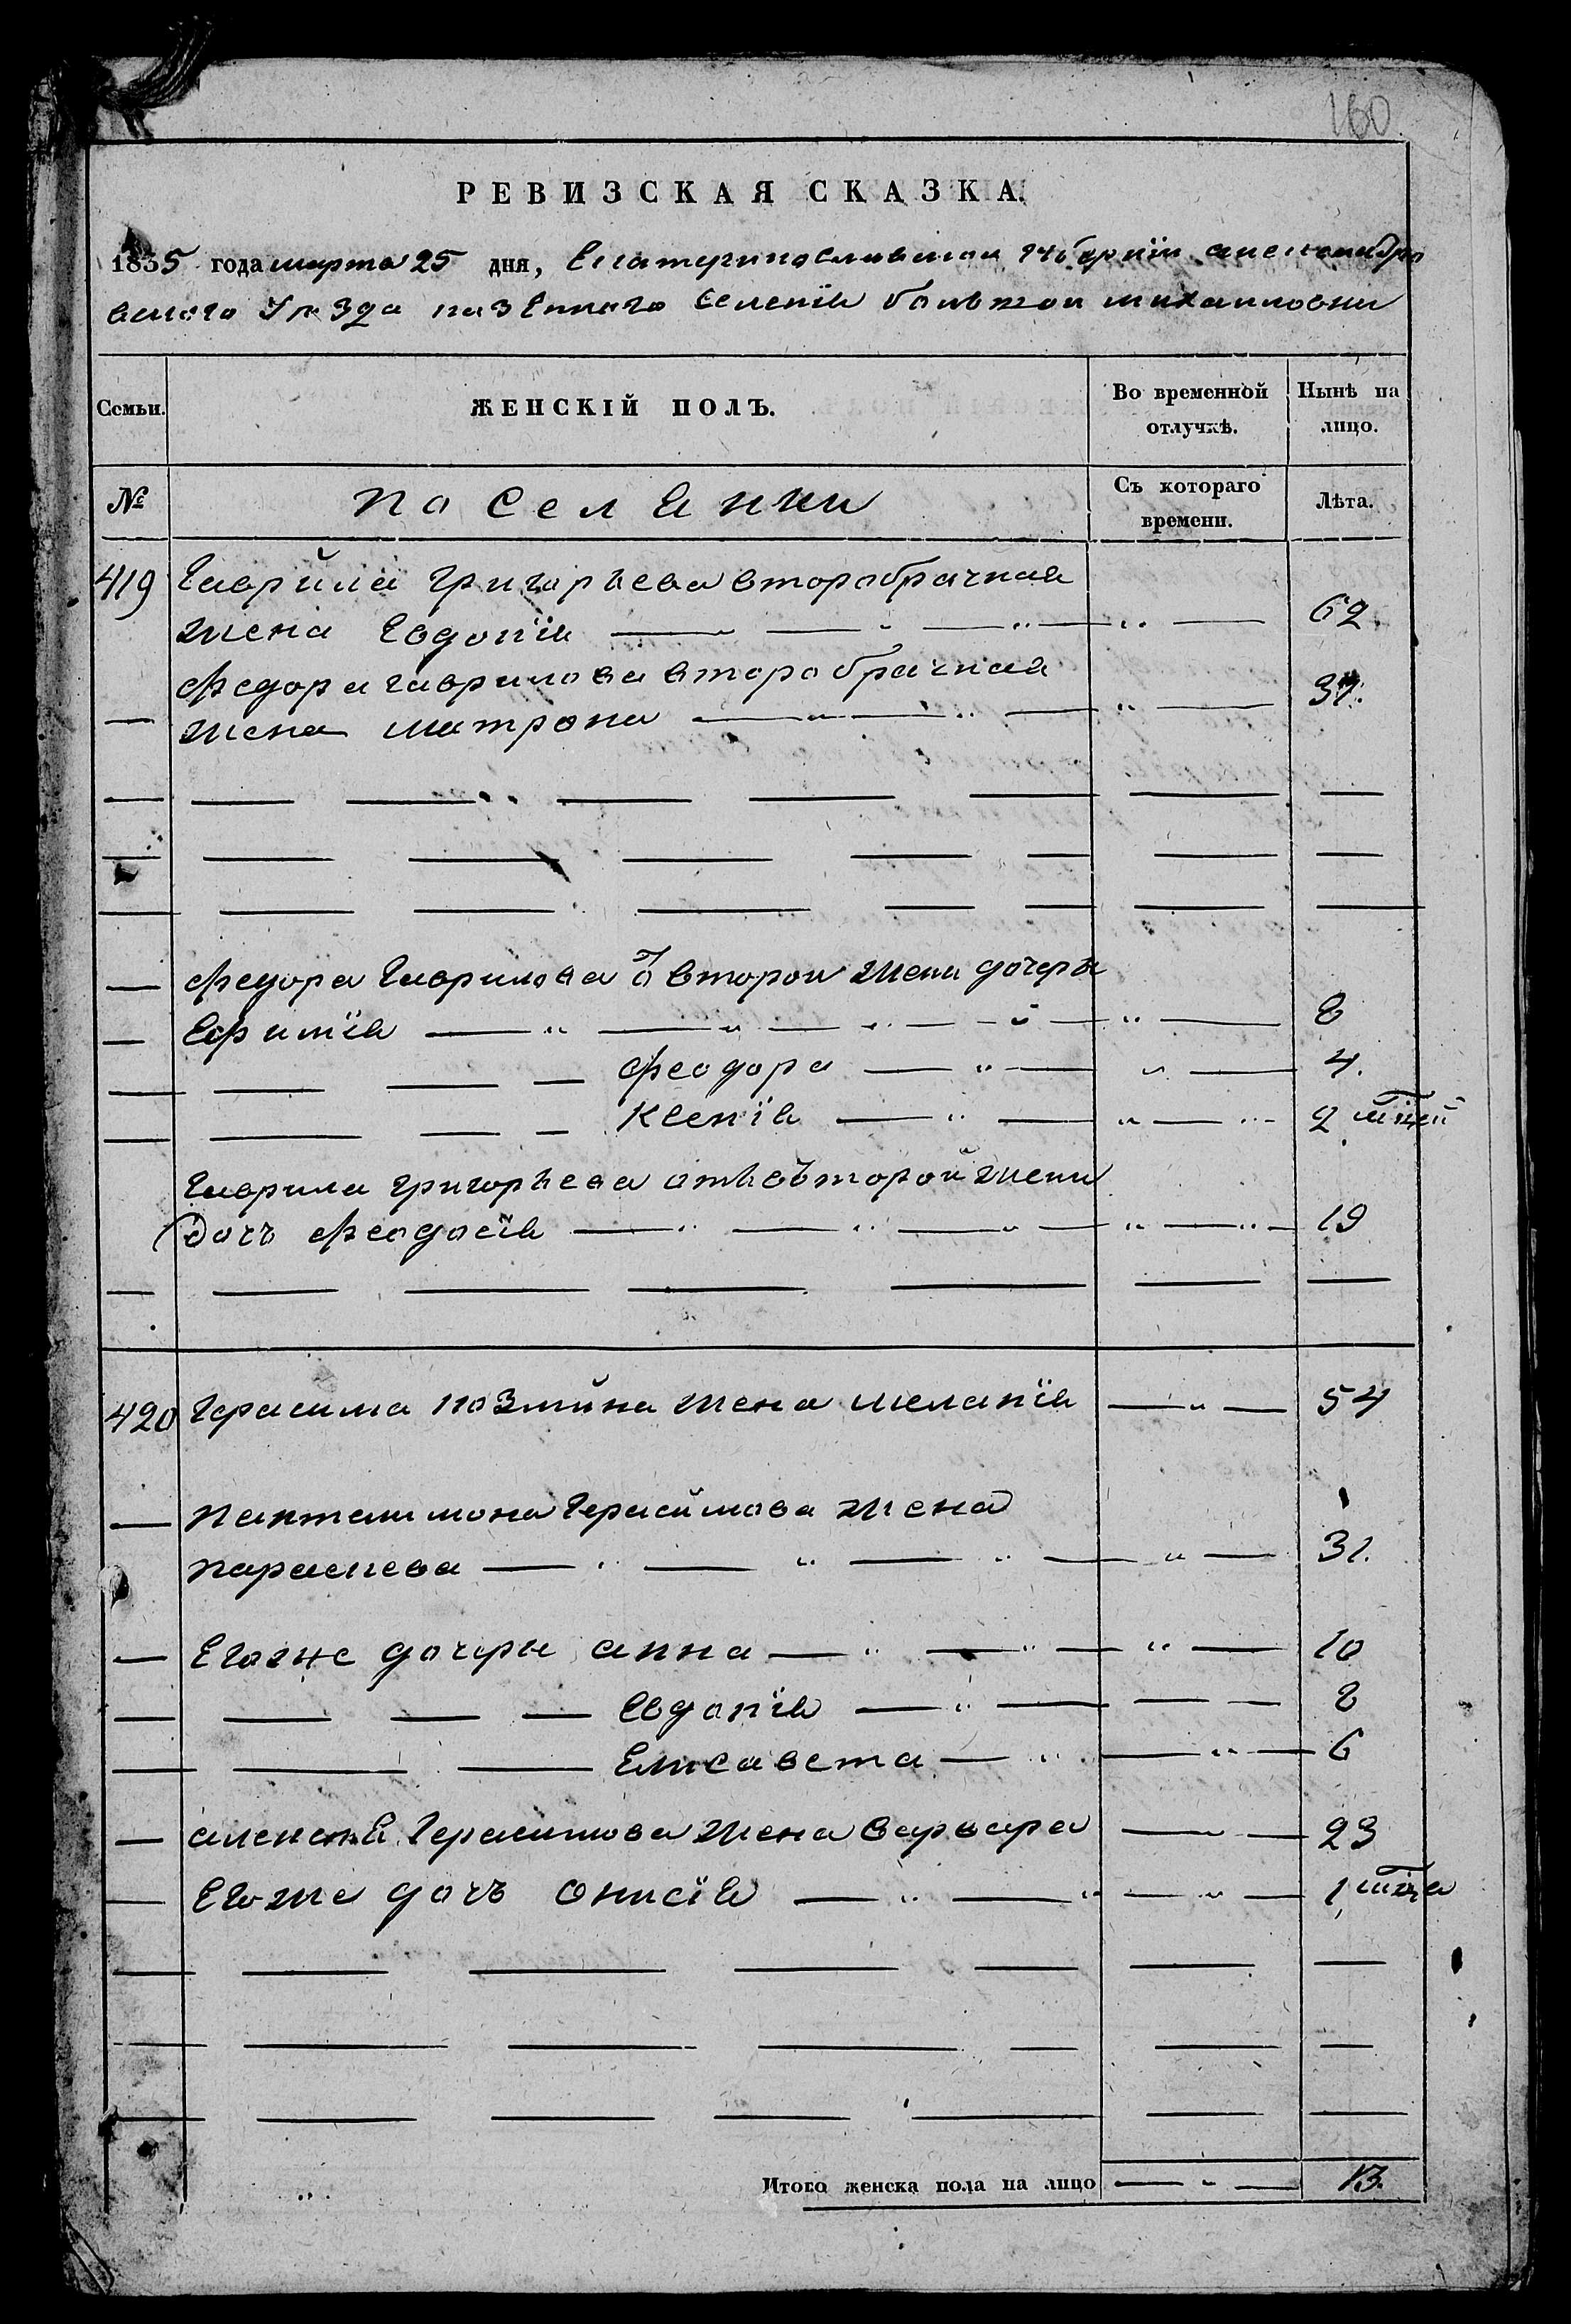 160
РЕВИЗСКАЯ СКАЗКА.
1835 года марта 25 дня, Екатеринославской губернiи александро
вского Уезда казенного селенiя большой михаиловки
Семьи. ЖЕНСКІЙ ПОЛЪ. Во временной отлучкѣ. Нынѣ на лицо.
№ поселянки Съ котораго времени. Лѣта.
419 Гаврила григорьева второбрачная
жена Евдокiя 62.
федора гаврилова второбрачная
жена матрона
федора Гаврилова от второй жены дочеря
Ефимiя 8
феодора 4.
Ксенiя 2 м:цей
Гаврила григорьева отъ второй жены
дочь феодосiя 19
420 Герасима козмина жена меланiя 54
пантелимона Герасимова жена
параскева 31.
Егоже дочери анна 10
Евдокiя 8
Елисавета 6
алексея Герасимова жена варвара 23
Егоже дочь онисiя 1 м:ца
Итого женска пола на лицо 13.